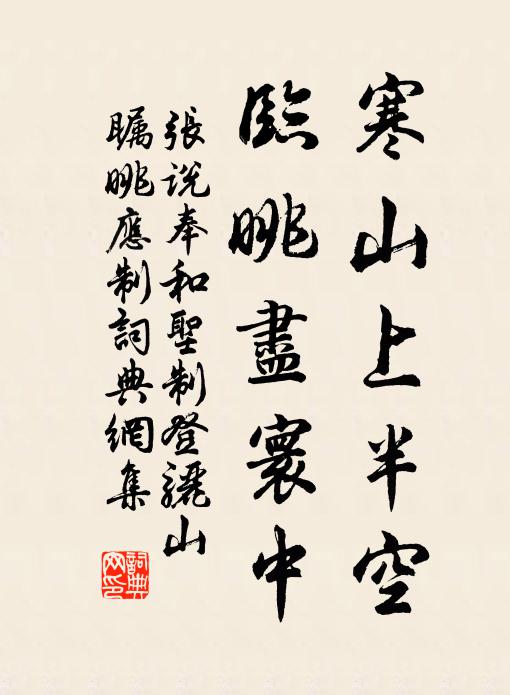 寒山上半空
臨眺盡寰中
張説奉和聖制登驪山
矚眺應制詞典網集
詞典網印